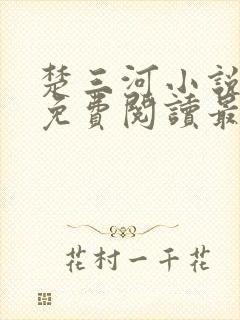 楚三河小說
免費閱讀最
花村一千花